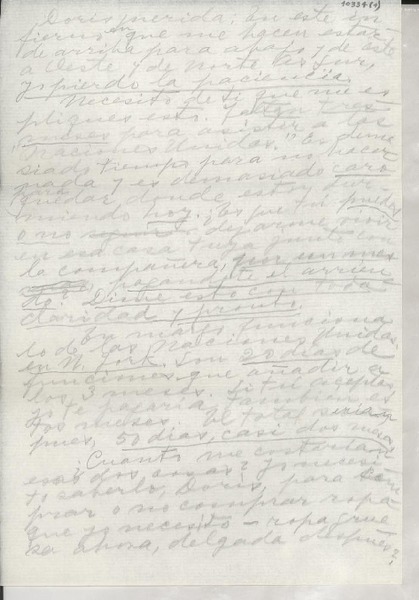 10334(1)
¡Doris querida: En este in
fierno en que me hacen estar
de arriba para abajo y de este
a Oeste y de Norte a Sur,
yo pierdo la paciencia.
Necesito de ti que me ex
pliques esto. Faltan tres
meses para asistir a las
"Naciones Unidas." Es dema
siado tiempo para no hacer
nada y es demasiado caro
quedar donde estoy dur
miendo hoy. ¿Es que tú puedes
o no dejarme vivir
en esa casa tuya junto con
la compañera, por un mes
pagando el arrien
do? Dime esto con toda
claridad y pronto.
En marzo funciona
lo de las Naciones Unidas
en N. York. Son 20 días de
funciones que añadir a
los 3 meses. Si tú aceptas
yo te pagaría también es
tos meses. El total sería
pues, 50 días, casi dos meses
¿Cuánto me costarían
esas dos cosas? Yo necesi
to saberlo, Doris, para com
prar o no comprar ropa
que yo necesito – ropa grue
sa ahora, delgada después?